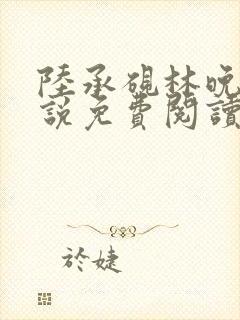 陸承硯林晚
說免費閱讀
於婕